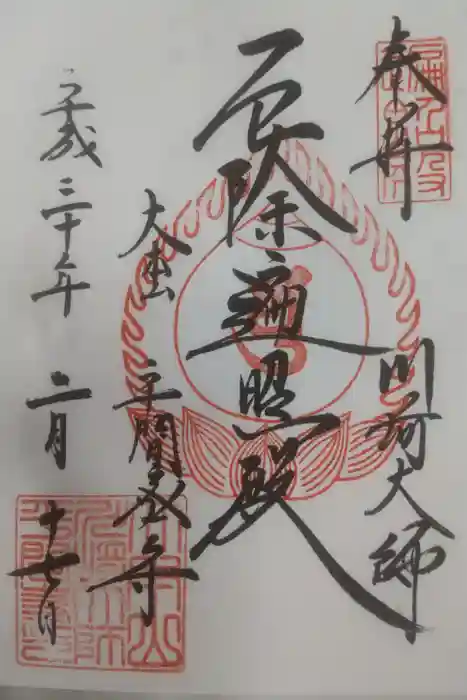 奉拝
川崎大師
厄除遍照殿
大本山
平間 寺
平成三十年 二月 十七日